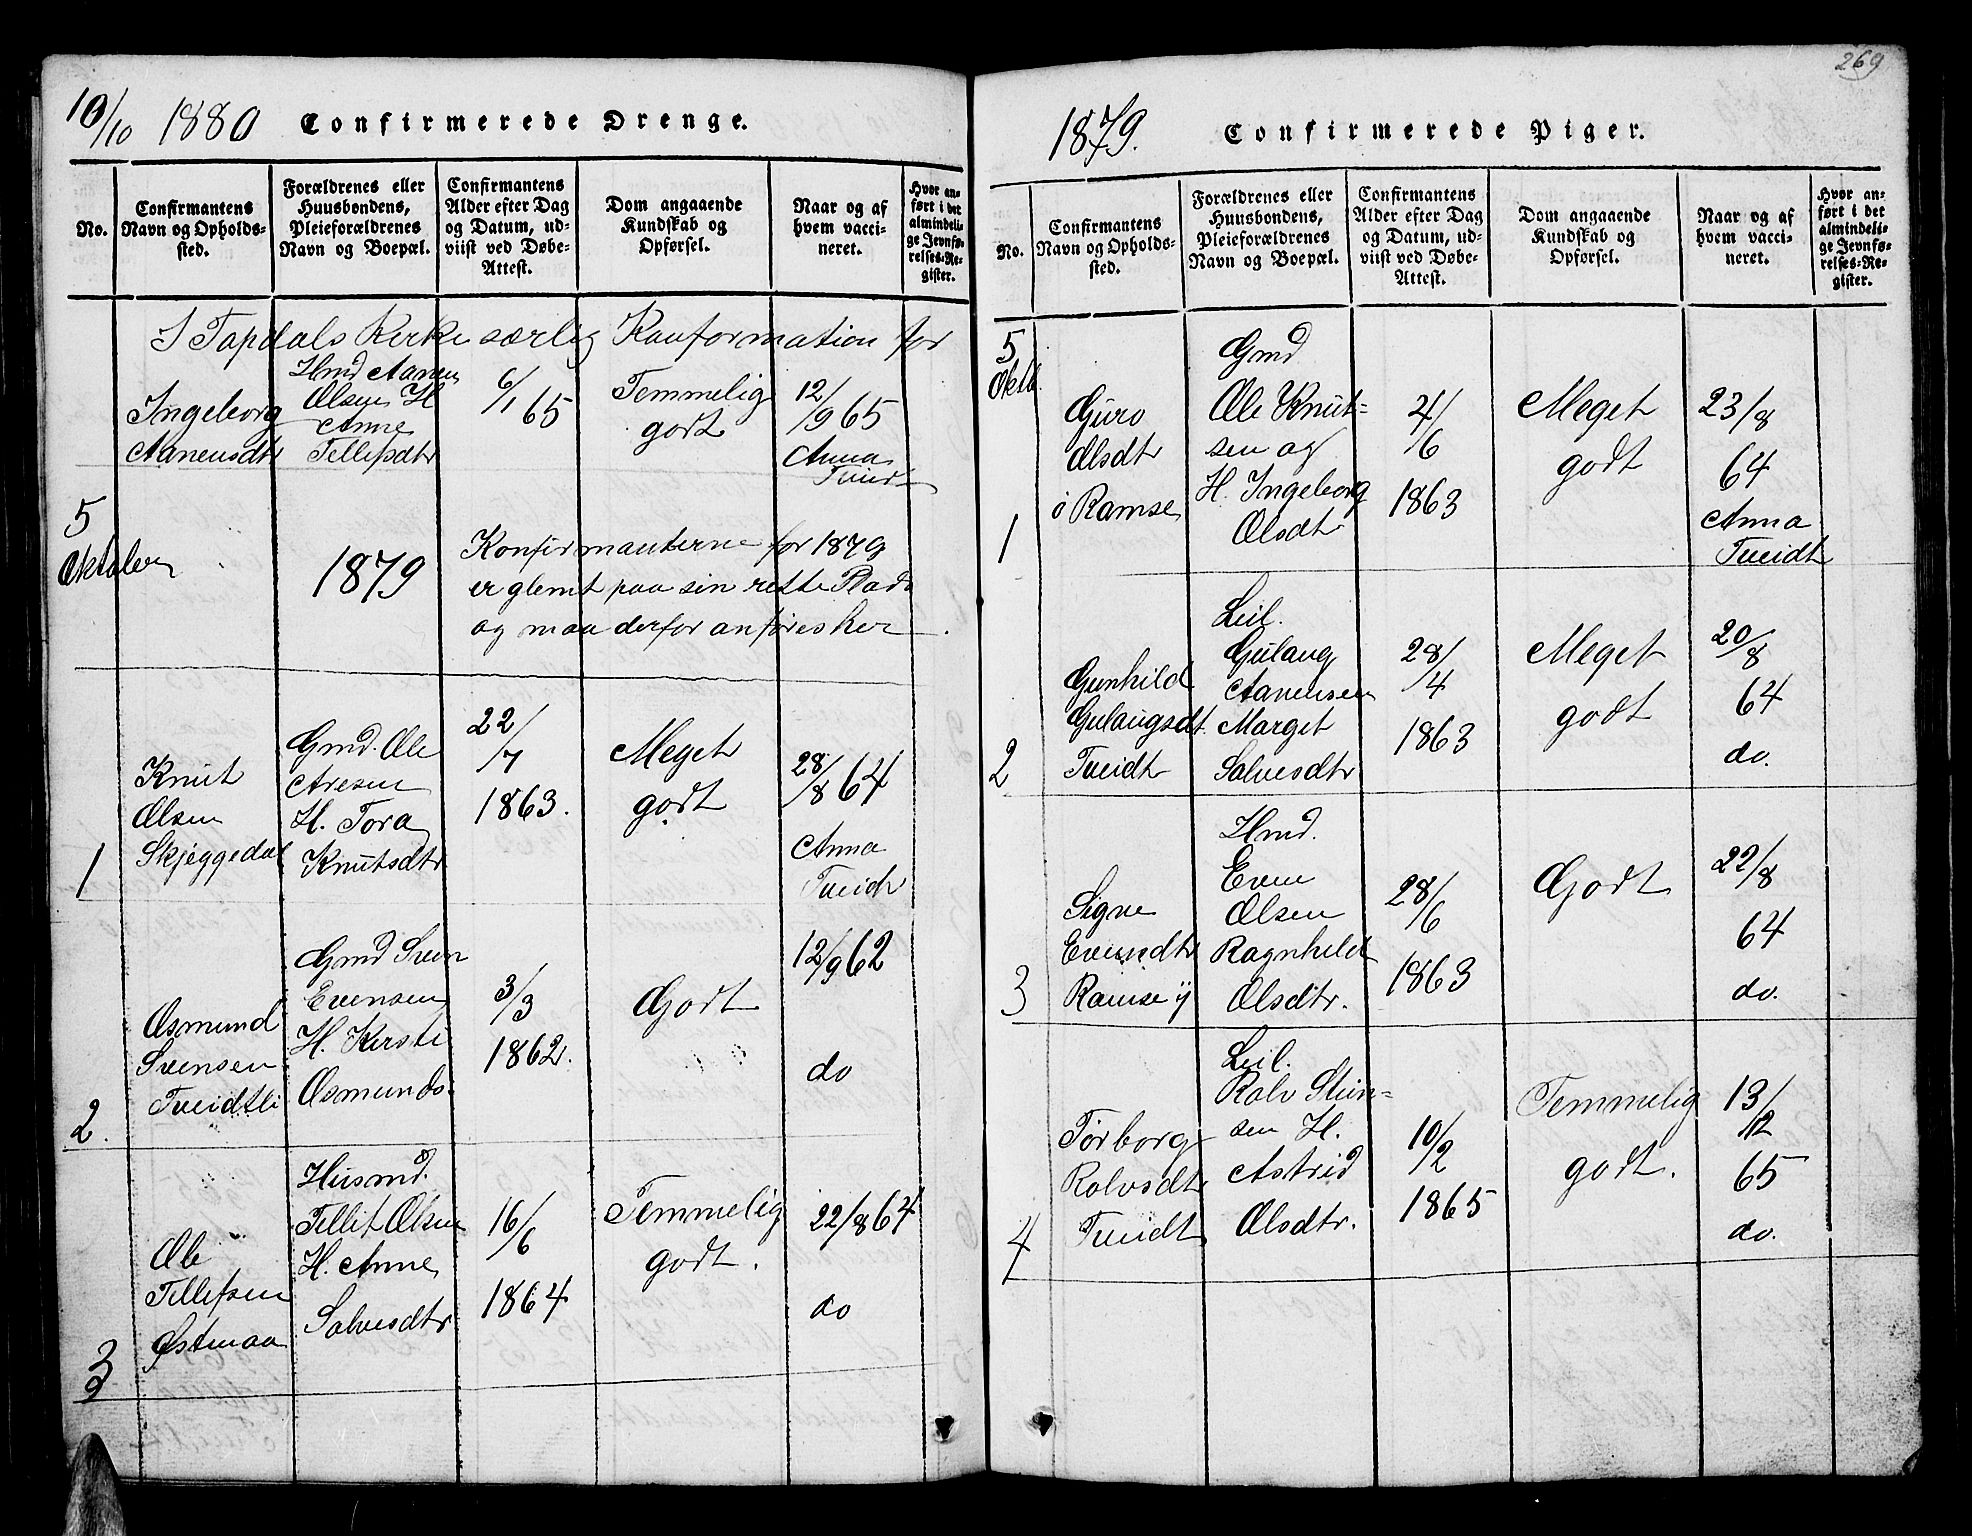 10/10 1880 Confirmerede Drenge.
No.
Confirmantens
Navn og Opholds-
sted.
Forældrenes eller
Huusbondens,
Pleieforældrenes
Navn og Boepæl.
Confirmantens
Alder efter Dag
og Datum, ud-
viist ved Døbe-
Attest.
Dom angaaende
Kundskab og
Opførsel.
Naar og af
hvem vacci-
neret.
Hvor an-
ført i det
almindeli-
ge Jevnfø-
relses-Re-
gister.
I Tapdals Kirke særlig Konformation for
Ingeborg
Aanensdtr
Hmd Aanen
Olsen H
Anne
Tellefsdtr
6/1 65
Temmelig
godt
12/9 65
Anna
5
Oktober
1879
Konfirmanterne for 1879
er glemt paa sin rette Plads
og maa derfor anføres her
1
Knut
Olsen
Skjeggedal
Gmd. Ole
Aresen
H. Tora
Knutsdtr
22/7
1863.
Meget
godt
28/8 64
Anna
Tveidt
2.
Osmund
Svensen
Tveidtli
Gmd Sven
Evensen
H. Kirsti
Osmunds.
3/3
1862.
Godt
12/9 62
do
3
Ole
Tellefsen
Østmaa
Husmd.
Tellef Olsen
H. Anne
Salvesdtr
16/6
1864
Temmelig
godt.
22/8 64
do
269
1879. Confirmerede Piger.
No.
Confirmantens
Navn og Opholds-
sted.
Forældrenes eller
Huusbondens,
Pleieforældrenes
Navn og Boepæl.
Confirmantens
Alder efter Dag
og Datum, ud-
viist ved Døbe-
Attest.
Dom angaaende
Kundskab og
Opførsel.
Naar og af
hvem vacci-
neret.
Hvor an-
ført i det
almindeli-
ge Jevnfø-
relses-Re-
gister.
5
Oktb.
1
Guro
Olsdtr
ö Ramse
Gmd
Ole Knut-
sen og
H. Ingeborg
Olsdtr
4/6
1863
Meget
godt
23/8
64
Anna
Tveidt
2
Gunhild
Gulaugsdt.
Tveidt
Leil.
Gulaug
Aanensen
Marget
Salvesdtr
28/4
1863
Meget
godt
20/8
64
do.
3
Signe
Evensdtr
Ramse y
Hmd.
Even
Olsen
Ragnhild
Olsdtr.
28/6
1863
Godt
22/8
64
do.
4
Torborg
Rolvsdtr
Tveidt
Leil.
Rolv Stein-
sen H.
Astrid
Olsdtr.
10/2
1865
Temmelig
godt.
13/12
65
do.